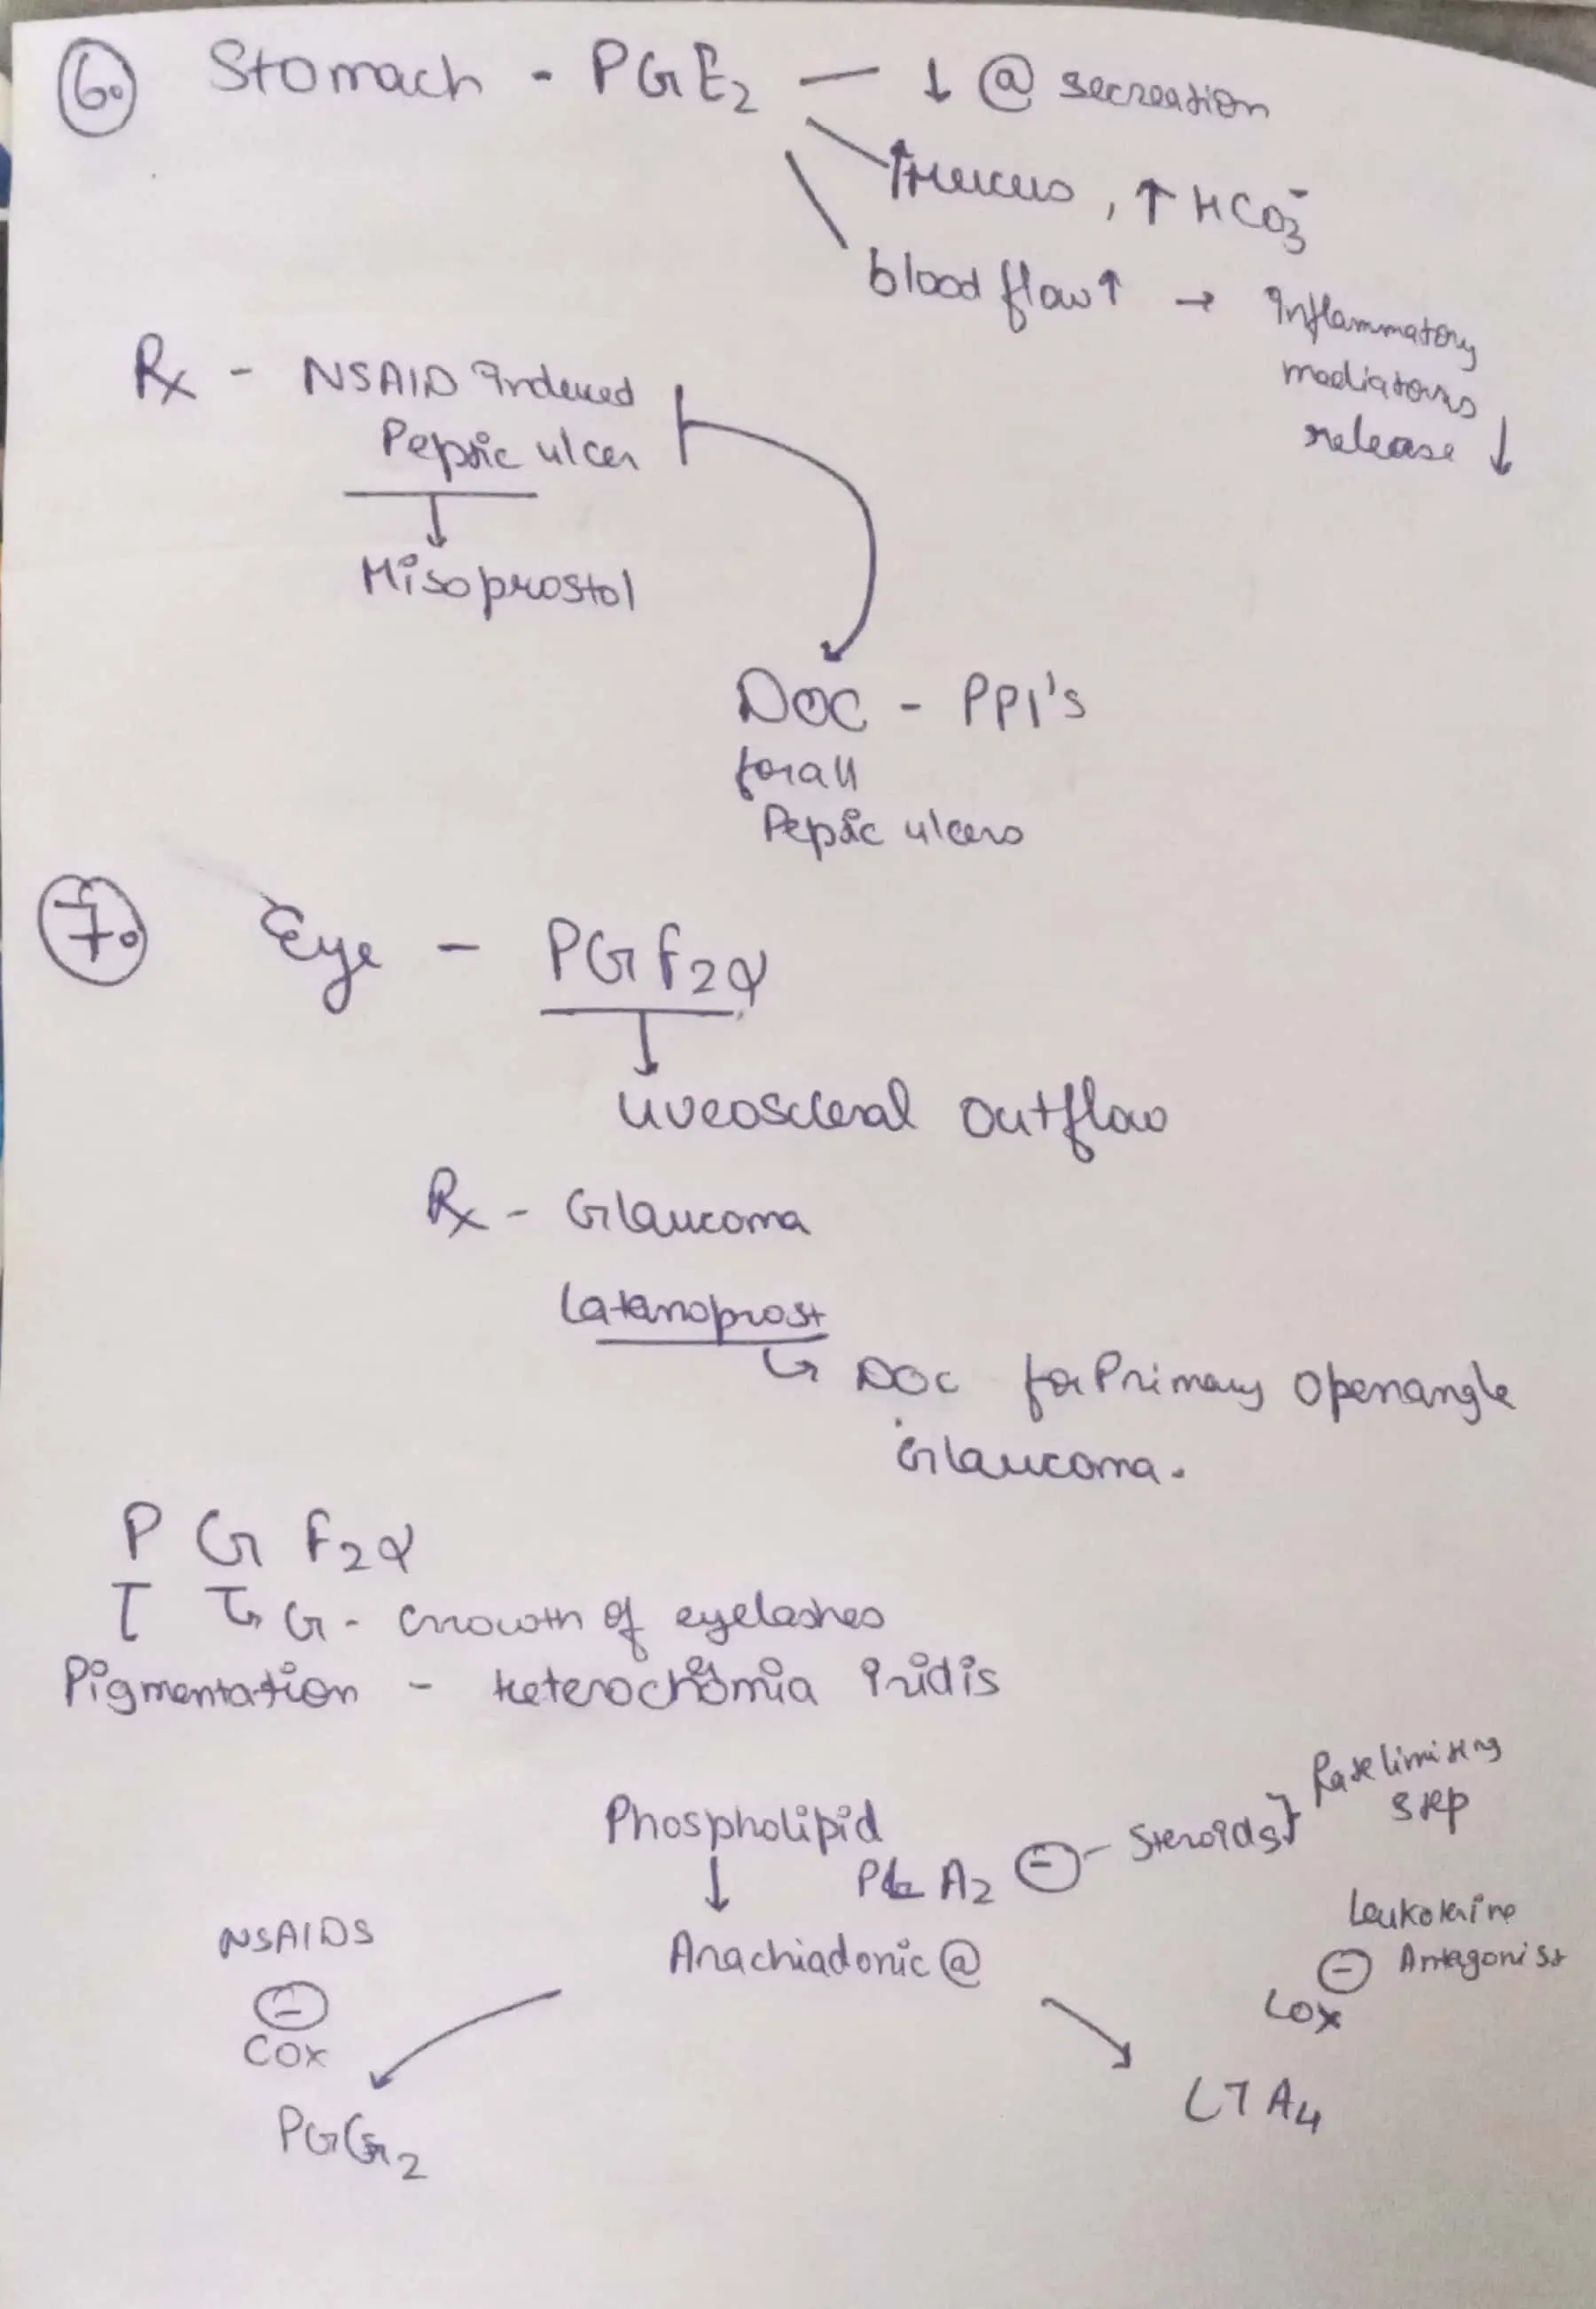 6. Stomach - PGE2 — ↓ @ secreation
↑Mucus, ↑ HCO3-
blood flow↑ → Inflammatory
mediators
release ↓
Rx - NSAID Induced
Peptic ulcer
↓
Misoprostol
DOC - PPI's
for all
Peptic ulcers
7. Eye - PGF2α
↓
uveoscleral outflow
Rx - Glaucoma
Latanoprost
↳ DOC for Primary Openangle
Glaucoma.
P G F2α
G - Growth of eyelashes
Pigmentation - Heterochromia Iridis
Phospholipid
↓ PLA2 ⊖ - Steroids} Rate limiting
step
Arachiadonic @
NSAIDS
⊖
COX
PGG2
Leukotriene
⊖ Antagonist
LOX
LTA4